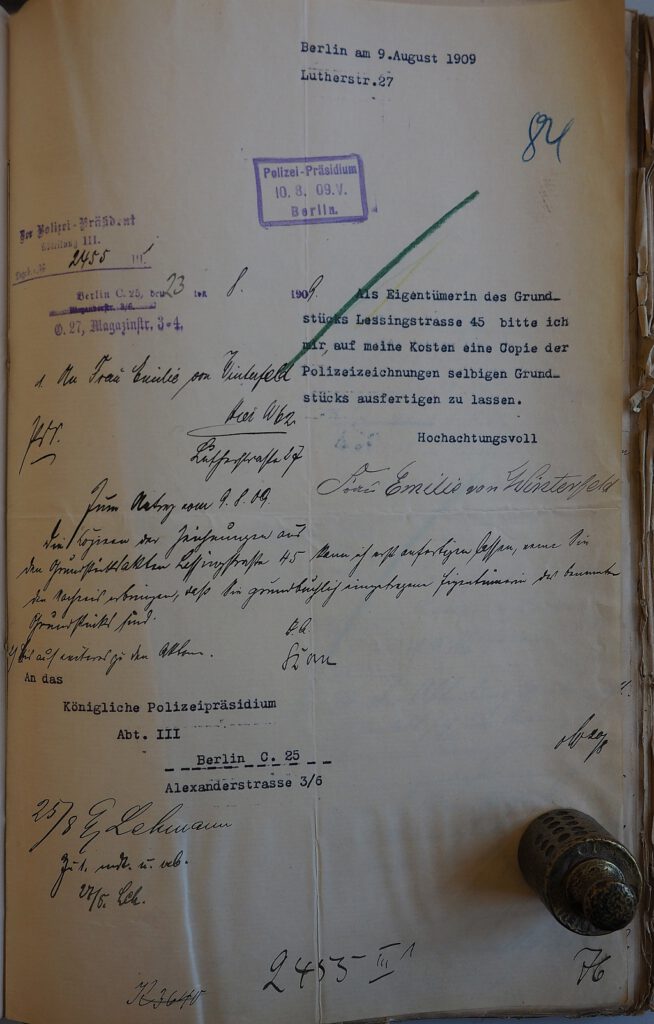 Berlin am 9.August 1909
Lutherstr.27
84
Polizei-Präsidium
10. 8. 09.V.
Berlin.
Der Polizei-Präsident
Abteilung III.
2455 III
Berlin C. 25, den 23 ten 8. 1909.
O. 27, Magazinstr. 3-4.
Als Eigentümerin des Grund_
stücks Lessingstrasse 45 bitte ich
mir, auf meine Kosten eine Copie der
Polizeizeichnungen selbigen Grund_
stücks ausfertigen zu lassen.
Hochachtungsvoll
Frau Emilie von Winterfeld
1. An Frau Emilie von Winterfeld
hier W62
Lutherstraße 27
Zum Antrag vom 9.8.09.
Die Kopieen der Zeichnungen aus
den Grundstücksakten Lessingstraße 45 kann ich erst anfertigen lassen, wenn Sie
den Nachweis erbringen, daß Sie grundbuchlich eingetragene Eigentümerin des benannten
Grundstücks sind.
2) Bis auf weiteres zu den Akten.
An das
Königliche Polizeipräsidium
Abt. III
Berlin C. 25
Alexanderstrasse 3/6
25/8 Lehmann
27/8. Leh.
2455 III 1
76
K 3640